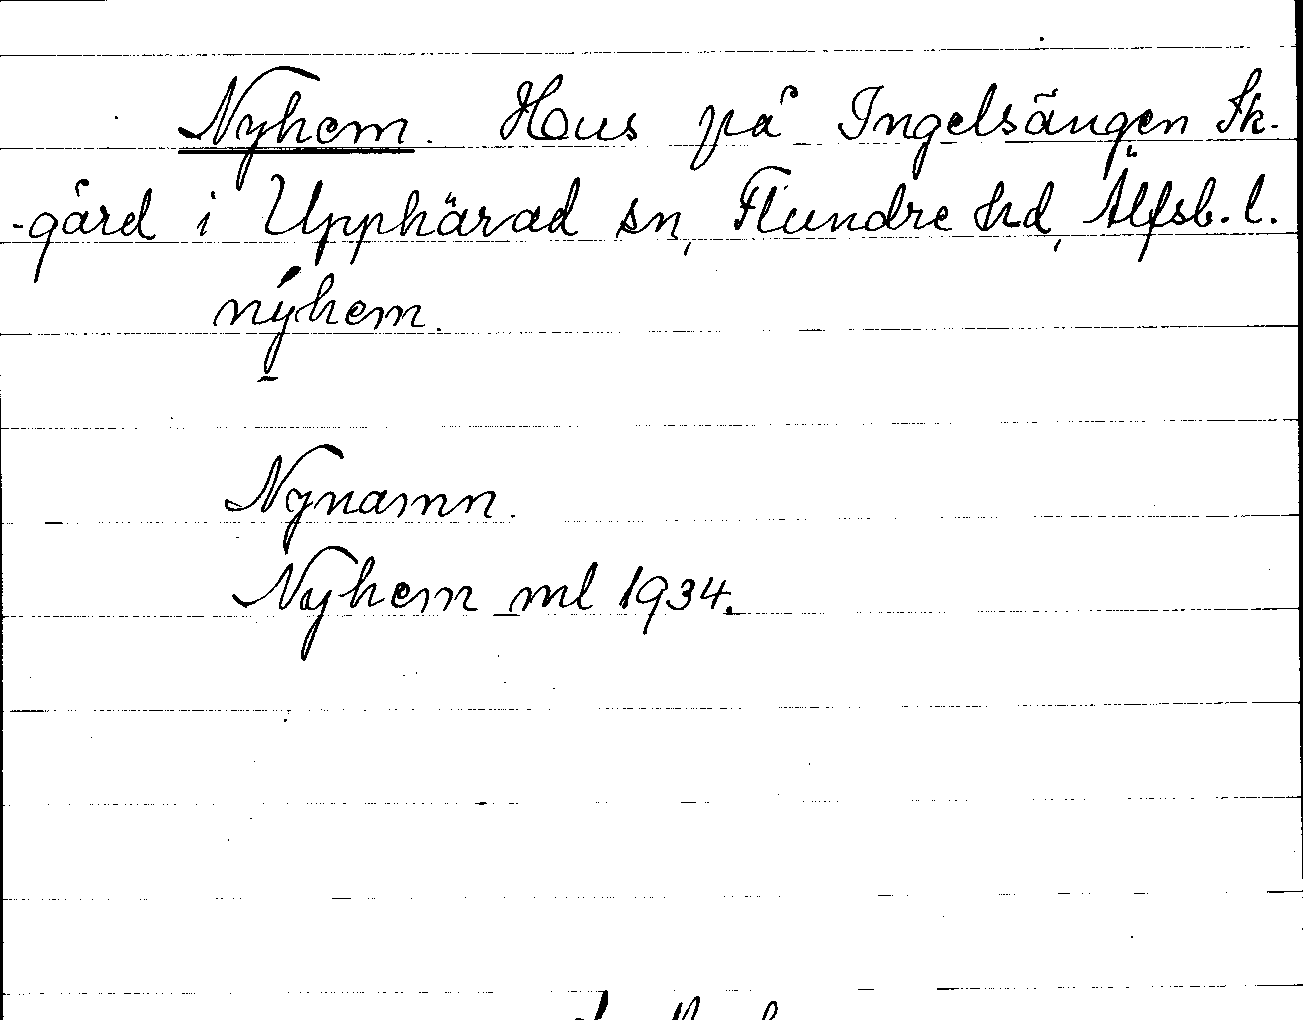 Nyhem. Hus på Ingelsängen Sk-
-gård i Upphärad sn, Flundre hd, Älfsb. l.
nýhem.
Nynamn.
Nyhem ml 1934.